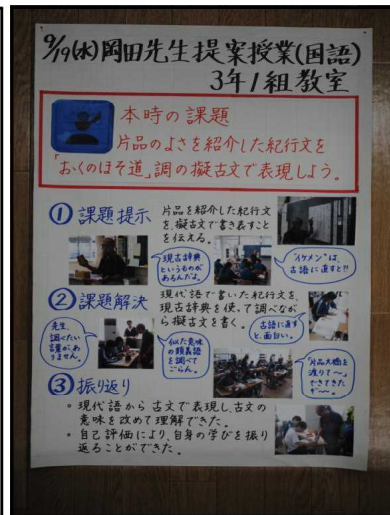 9/19(水)岡田先生提案授業(国語)
3年1組教室
本時の課題
片品のよさを紹介した紀行文を
「おくのほそ道」調の擬古文で表現しよう。
① 課題提示
片品を紹介した紀行文
を、擬古文で書き表すこと
を伝える。
現古辞典
というものが
あるんだよ。
"イケメン"は、
古語に直すと!!
② 課題解決
現代語で書いた紀行文を、
現古辞典を使って調べなが
ら擬古文を書く。
先生、
調べたい
言葉があ
りません。
似た意味
の類義語
を調べて
ごらん。
古語に直す
と、面白い。
「片品大橋を
渡りて〜」
できてきた
ぞ〜。
③ 振り返り
・現代語から古文で表現し、古文の
意味を改めて理解できた。
・自己評価により、自身の学びを振り
返ることができた。